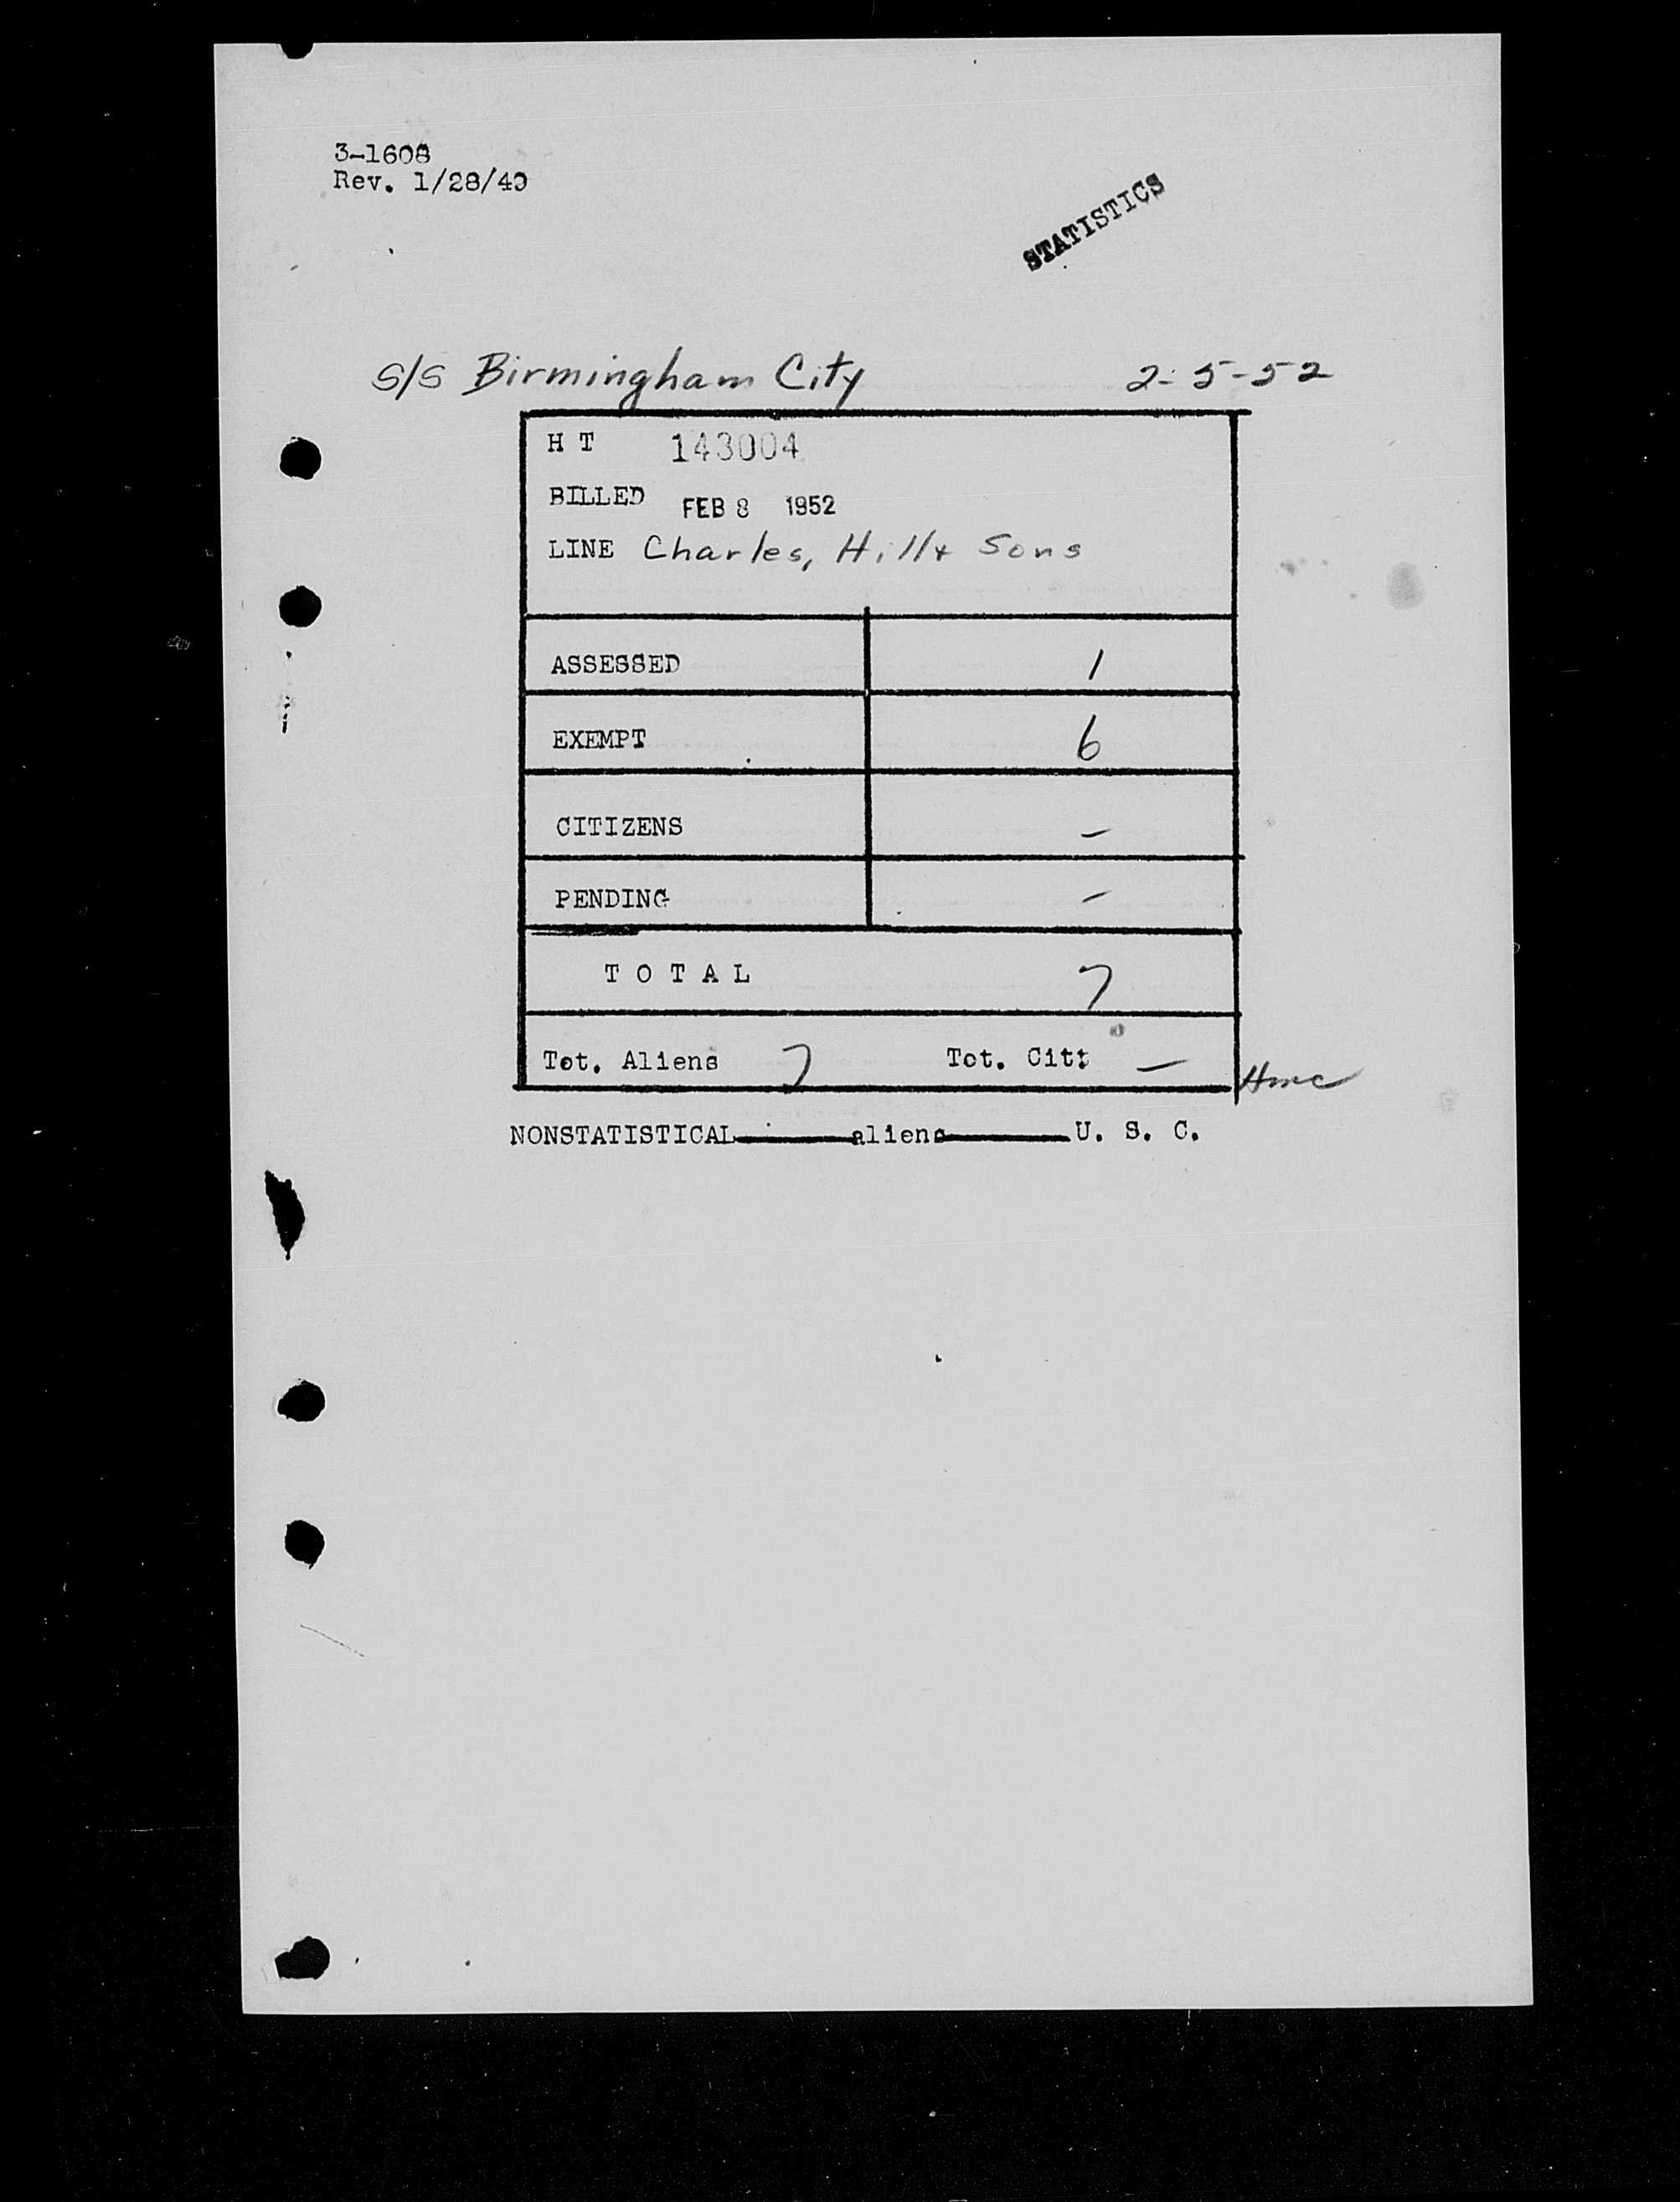 3-1608
Rev. 1/28/49
STATISTICS
S/S Birmingham City 2-5-52
H T 143004
BILLED FEB 8 1952
LINE Charles, Hill & Sons
ASSESSED 1
EXEMPT 6
CITIZENS -
PENDING -
T O T A L 7
Tot. Aliens 7 Tot. Citz -
NONSTATISTICAL aliens U. S. C.